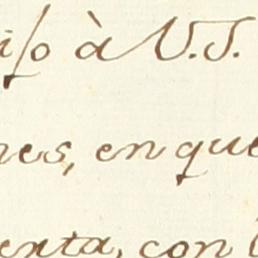 iso à V.S.
nes, en que
enta, con